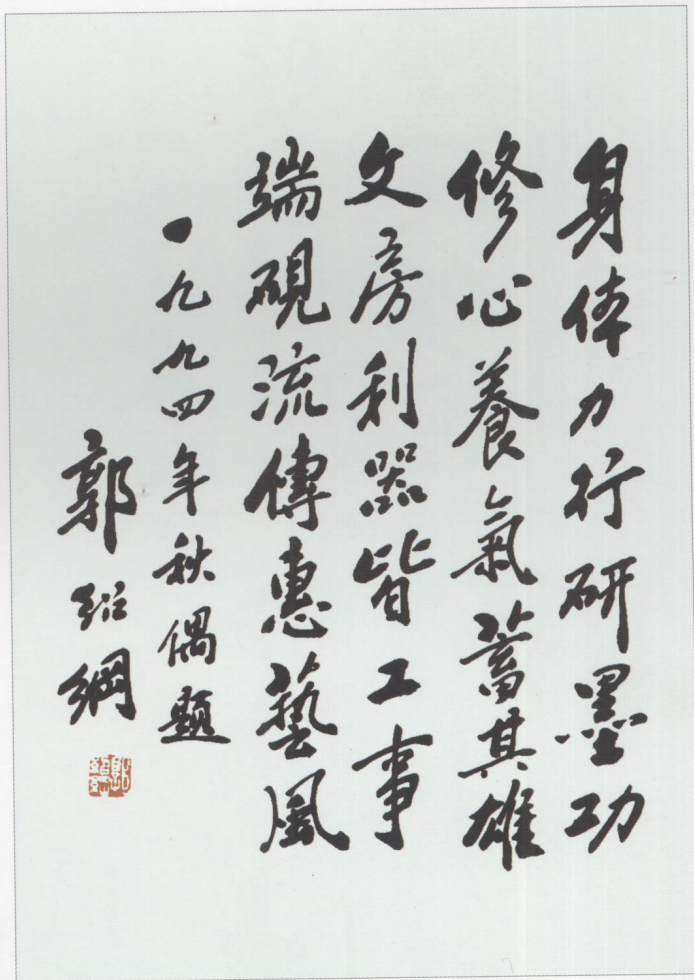 身体力行研墨功
修心養氣蓄其雄
文房利器皆工事
端硯流傳惠藝風
一九九四年秋偶题
郭绍綱